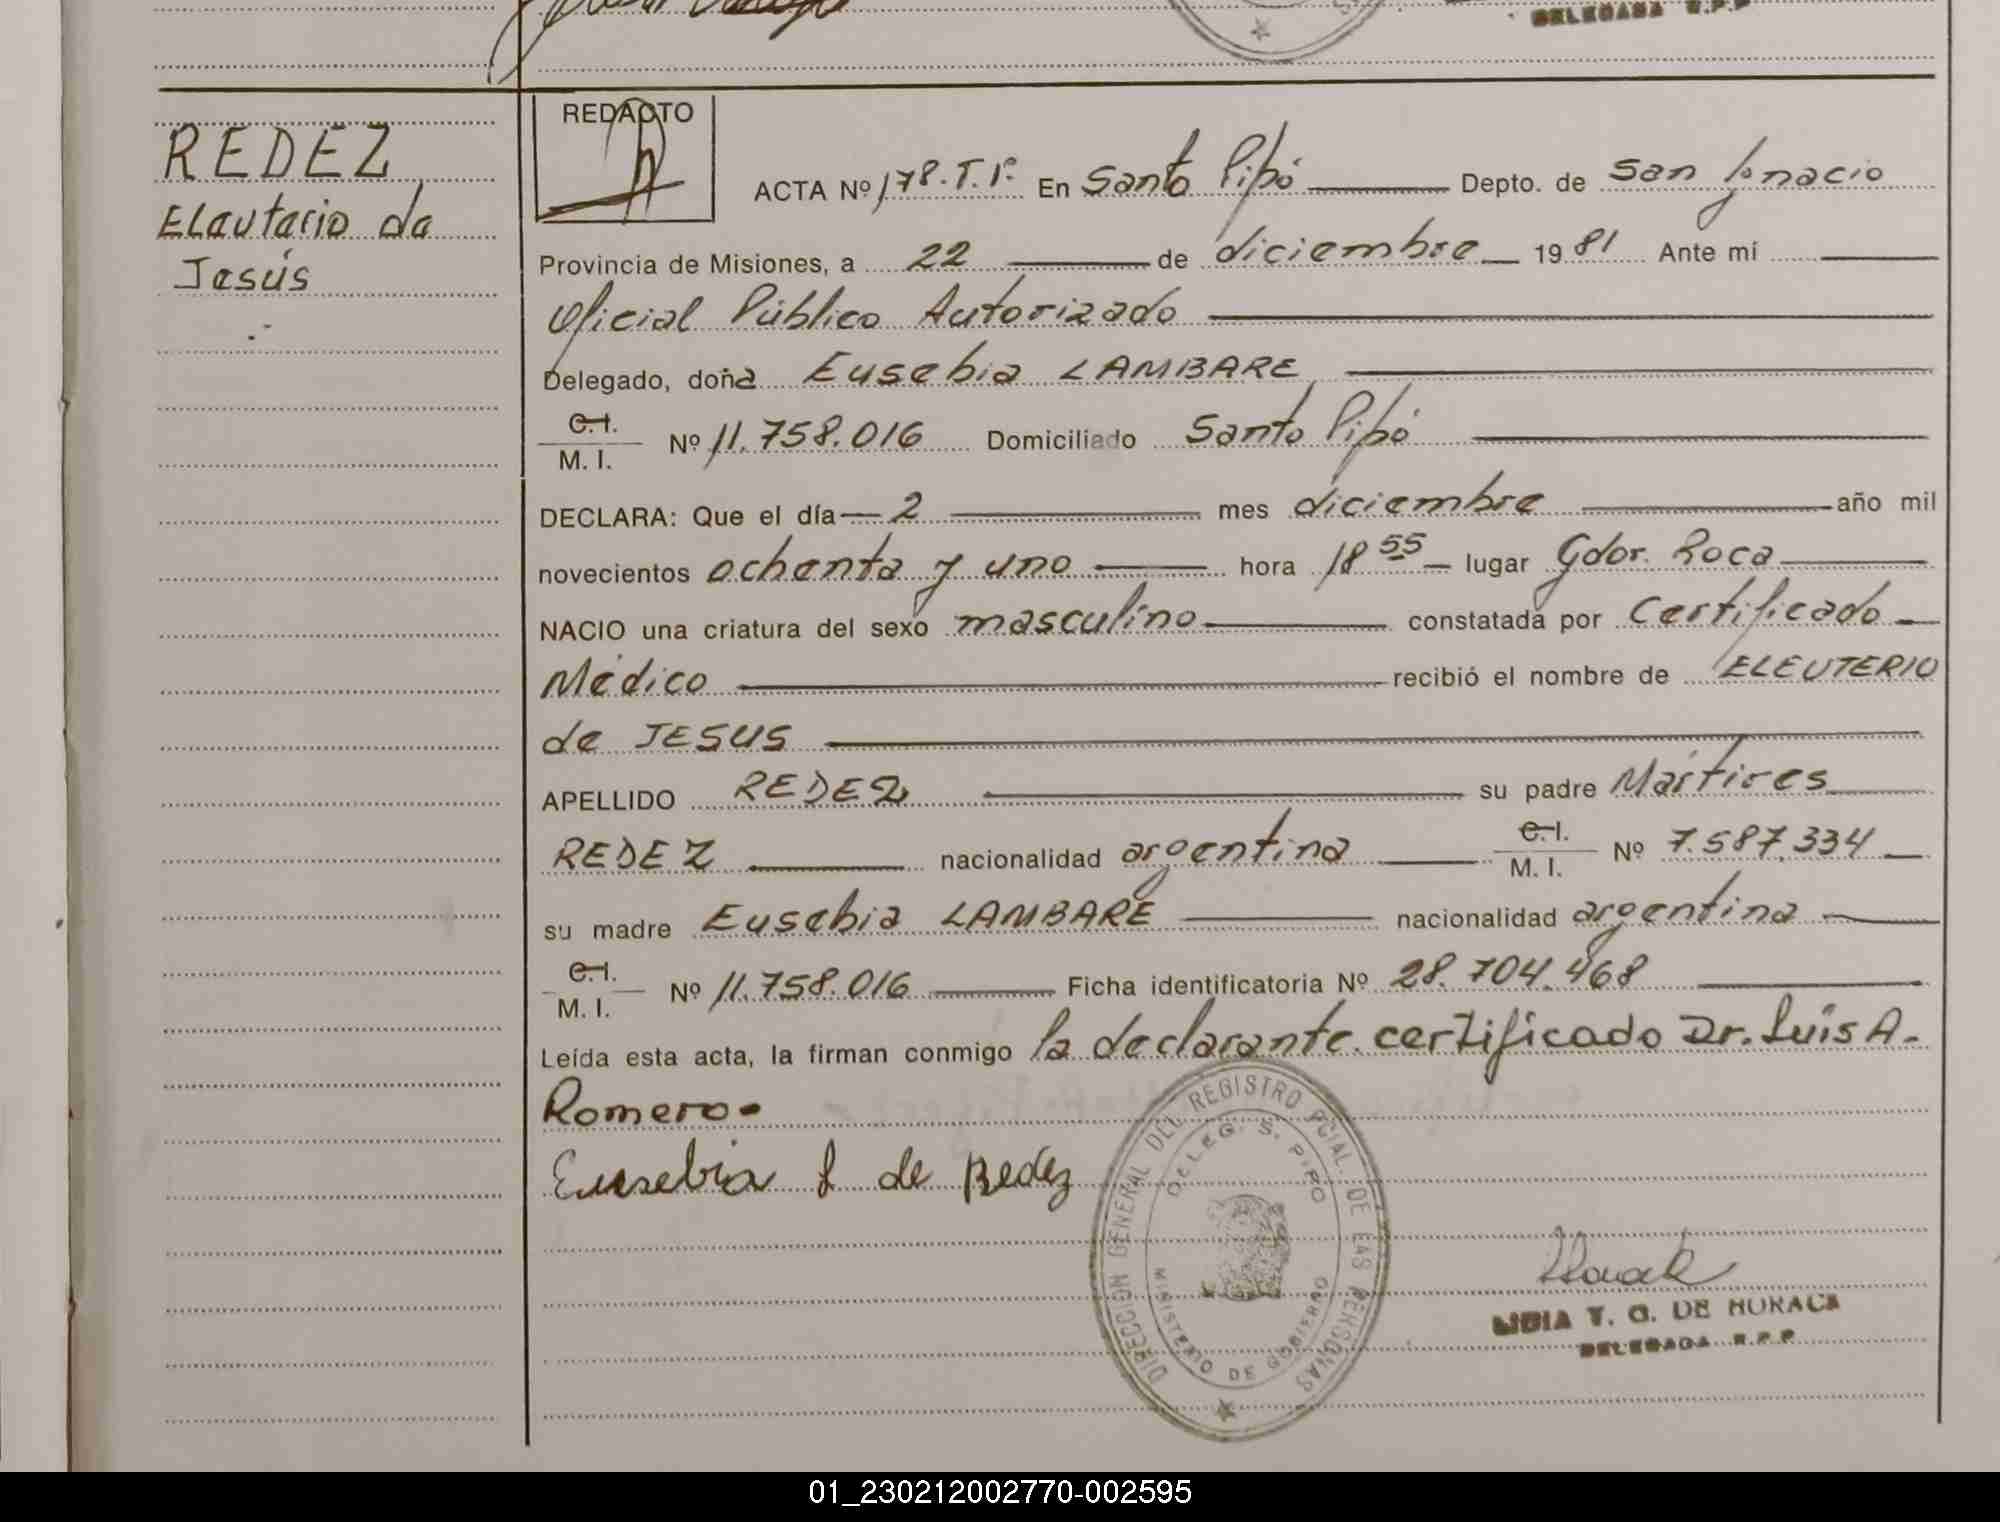 DELEGADA R.P.P
REDEZ
Eleuterio de
Jesús
REDACTO
ACTA Nº 178.T.Iº. En Santo Pipó Depto. de San Ignacio
Provincia de Misiones, a 22 de diciembre 1981 Ante mí
Oficial Público Autorizado
Delegado, doña Eusebia LAMBARE
C.I.
M. I. Nº 11.758.016 Domiciliado Santo Pipó
DECLARA: Que el día 2 mes diciembre año mil
novecientos ochenta y uno hora 18 55 lugar Gdor. Roca
NACIO una criatura del sexo masculino constatada por Certificado
Médico recibió el nombre de ELEUTERIO
de JESUS
APELLIDO REDEZ su padre Mártires
REDEZ nacionalidad argentina C.I. M. I. Nº 7.587.334
su madre Eusebia LAMBARE nacionalidad argentina
C.I.
M. I. Nº 11.758.016 Ficha identificatoria Nº 28.704.468
Leída esta acta, la firman conmigo la declarante. certificado Dr. Luis A.
Romero.
Eusebia L de Redez
DIRECCION GENERAL DEL REGISTRO PCIAL. DE LAS PERSONAS
DELEG. S. PIPO
MINISTERIO DE GOBIERNO
LIDIA T. G. DE HORACK
DELEGADA R.P.P.
01_230212002770-002595